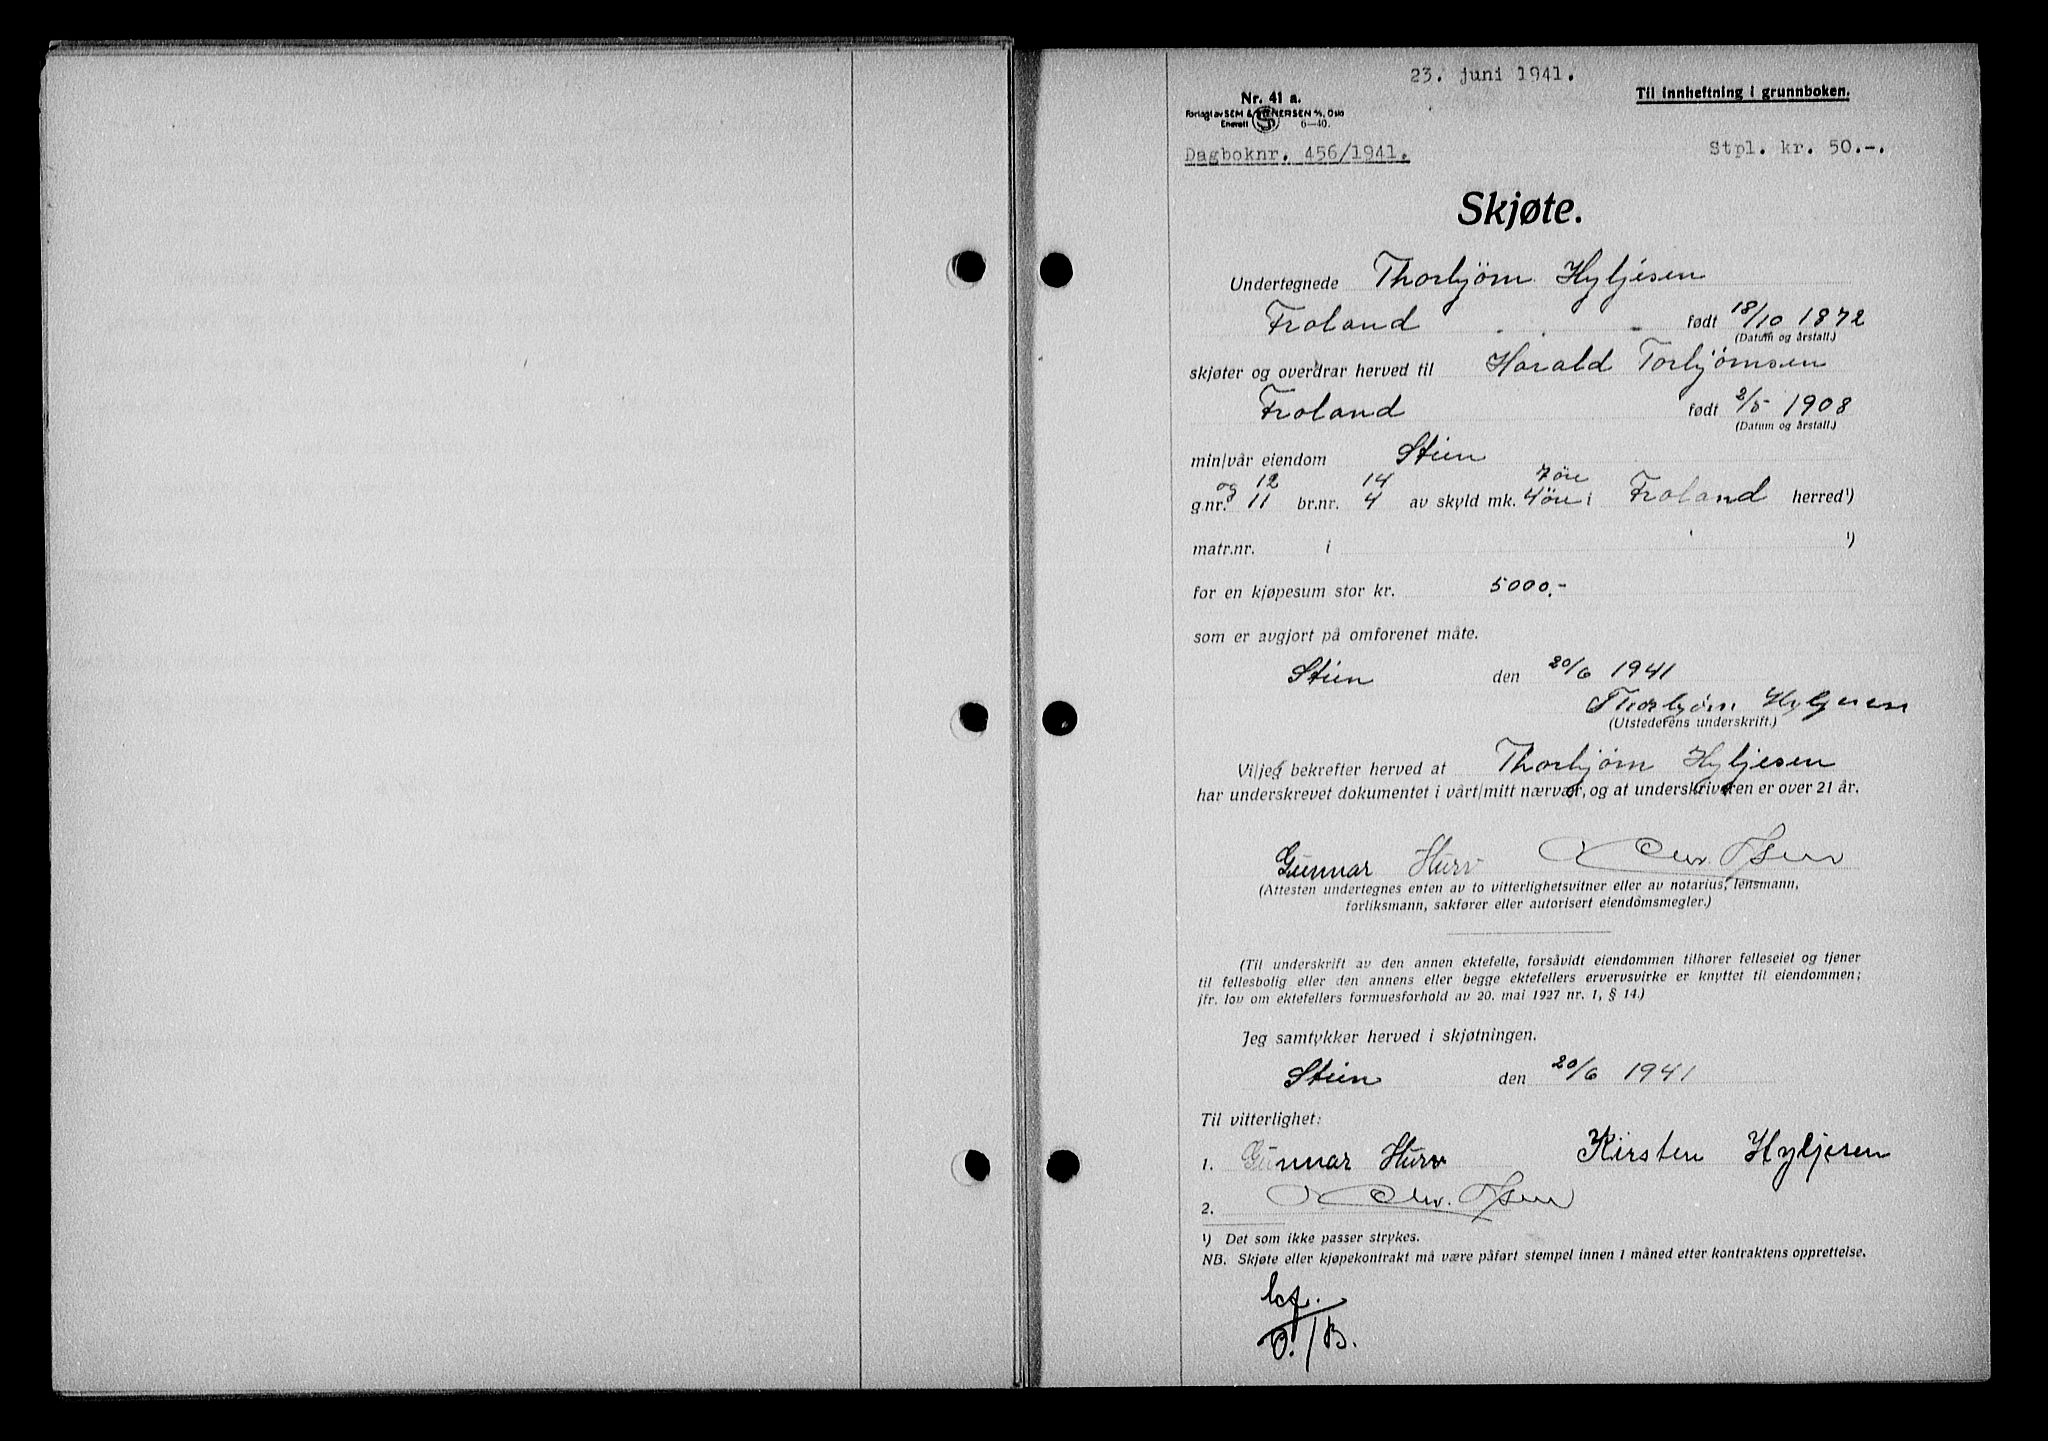 23. juni 1941.
Nr. 41 a.
Til innheftning i grunnboken.
Forlagt av SEM & STENERSEN A/S, Oslo
Enerett 6-40.
Dagboknr. 456/1941.
Stpl. kr. 50.-.
Skjøte.
Undertegnede Thorbjørn Hyljesen
Froland født 18/10 1872
(Datum og årstall.)
skjøter og overdrar herved til Harald Torbjørnsen
Froland født 2/5 1908
(Datum og årstall.)
min/vår eiendom Stien
og 12 14 7 øre
g.nr. 11 br.nr. 4 av skyld mk. 4 øre i Froland herred¹)
matr.nr. i ¹)
for en kjøpesum stor kr. 5000.-
som er avgjort på omforenet måte.
Stien den 20/6 1941
Thorbjørn Hyljesen
(Utstederens underskrift.)
Vi/jeg bekrefter herved at Thorbjørn Hyljesen
har underskrevet dokumentet i vårt/mitt nærvær, og at underskriveren er over 21 år.
Gunnar Hurv
(Attesten undertegnes enten av to vitterlighetsvitner eller av notarius, lensmann,
forliksmann, sakfører eller autorisert eiendomsmegler.)
(Til underskrift av den annen ektefelle, forsåvidt eiendommen tilhører felleseiet og tjener
til fellesbolig eller den annens eller begge ektefellers ervervsvirke er knyttet til eiendommen;
jfr. lov om ektefellers formuesforhold av 20. mai 1927 nr. 1, § 14.)
Jeg samtykker herved i skjøtningen.
Stien den 20/6 1941
Til vitterlighet:
1. Gunnar Hurv Kirsten Hyljesen
2.
¹) Det som ikke passer strykes.
NB. Skjøte eller kjøpekontrakt må være påført stempel innen 1 måned etter kontraktens opprettelse.